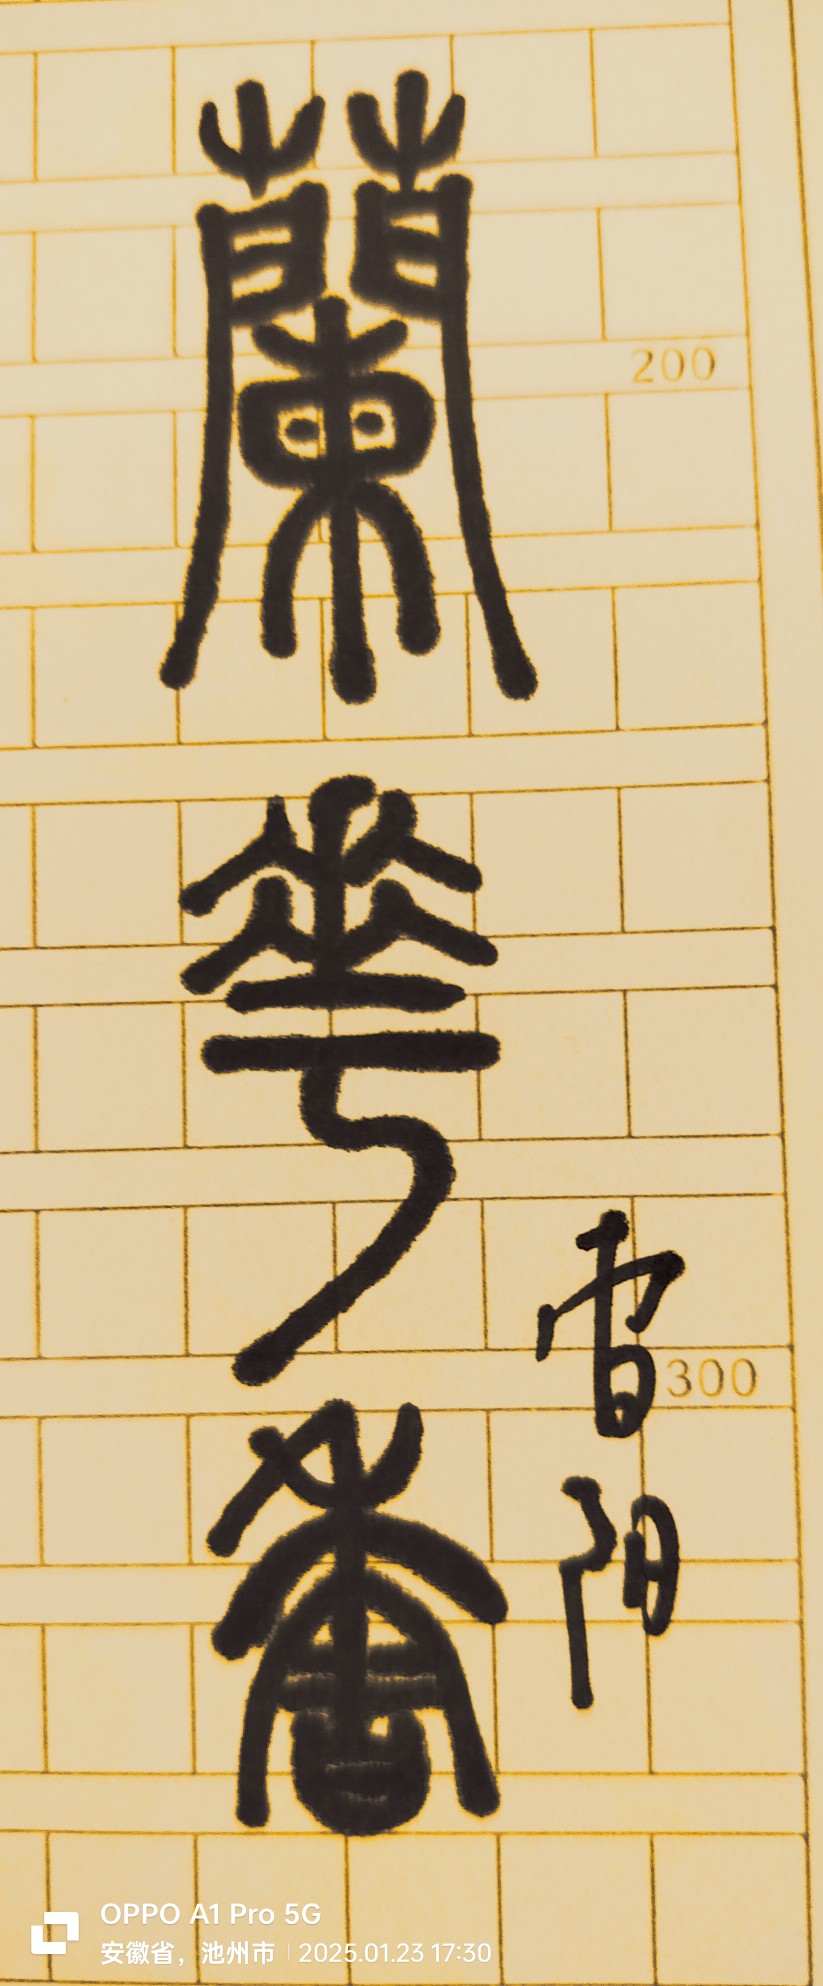 蘭華香
雪陽
200
300
OPPO A1 Pro 5G
安徽省，池州市 | 2025.01.23 17:30